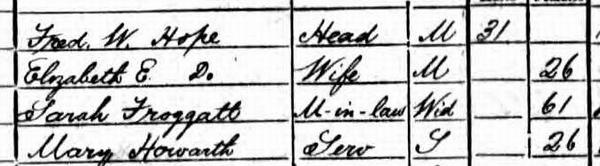 Fred. W. Hope Head M 31
Elizabeth E. Do. Wife M 26
Sarah Froggatt M-in-law Wid 61
Mary Howarth Serv S 26